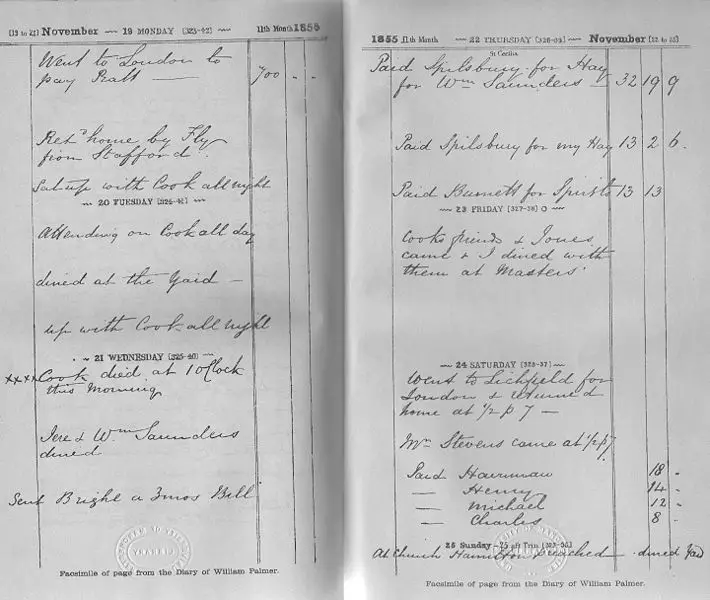 (12 to 21) November — 19 MONDAY (323-42) — 11th Month 1855
Went to London to
pay Pratt — 700 . .
Retd home by Fly
from Stafford.
Sat up with Cook all night
— 20 TUESDAY (324-41) —
Attending on Cook all day
dined at the Yard —
up with Cook all night
— 21 WEDNESDAY (325-40) —
xxxx Cook died at 1 oClock
this Morning
Jere & Wm Saunders
dined
Sent Bright a 3mos Bill
Facsimile of page from the Diary of William Palmer.
1855 11th Month — 22 THURSDAY (326-39) — November (22 to 25)
St Cecilia
Paid Spilsbury for Hay
for Wm Saunders — 32 19 9
Paid Spilsbury for my Hay 13 2 6.
Paid Burnett for Spirits 13 13
— 23 FRIDAY (327-38) O —
Cooks friends & Jones
came & I dined with
them at Masters'
— 24 SATURDAY (328-37) —
Went to Lichfield for
London & returned
home at 1/2 p 7 —
Mr Stevens came at 1/2 p 7.
Paid Hairman 18 -
— Henry 14 -
— Michael 12 -
— Charles 8 -
25 Sunday — 25 aft Trin. (329-36)
At Church Hamilton Preached - dined Yard
Facsimile of page from the Diary of William Palmer.